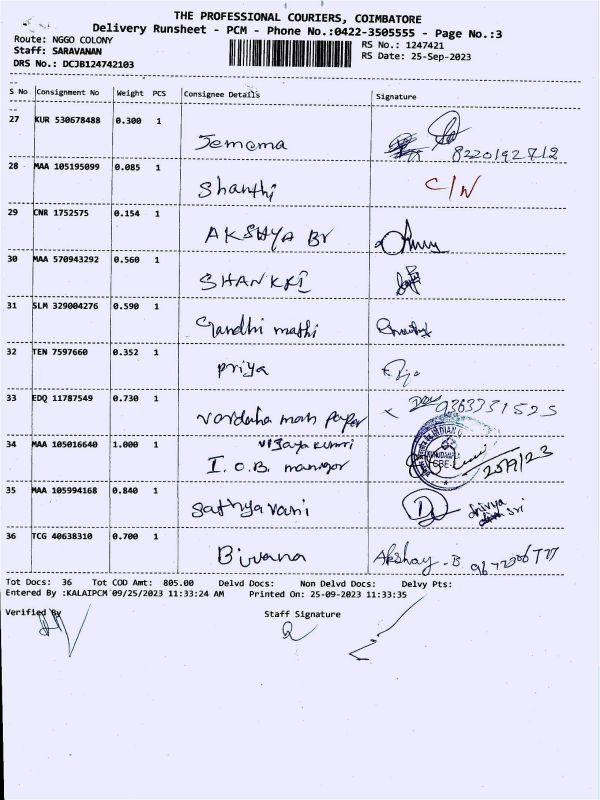 THE PROFESSIONAL COURIERS, COIMBATORE
Delivery Runsheet - PCM - Phone No.:0422-3505555 - Page No.:3
Route: NGGO COLONY
RS No.: 1247421
Staff: SARAVANAN
RS Date: 25-Sep-2023
DRS No.: DCJB124742103
S No Consignment No Weight PCS Consignee Details Signature
27 KUR 530678488 0.300 1
Jemema 8220192712
28 MAA 105195099 0.085 1
Shanthi C/N
29 CNR 1752575 0.154 1
AKSHYA BV
30 MAA 570943292 0.560 1
SHANKRI
31 SLM 329004276 0.590 1
Gandhi mathi
32 TEN 7597660 0.352 1
priya
33 EDQ 11787549 0.730 1
9363331525
34 MAA 105016640 1.000 1
I.O.B. manager 25/9/23
35 MAA 105994168 0.840 1
Sathyavani
36 TCG 40638310 0.700 1
Akshay-B
Tot Docs: 36 Tot COD Amt: 805.00 Delvd Docs: Non Delvd Docs: Delvy Pts:
Entered By :KALAIPCM 09/25/2023 11:33:24 AM Printed On: 25-09-2023 11:33:35
Verified By Staff Signature